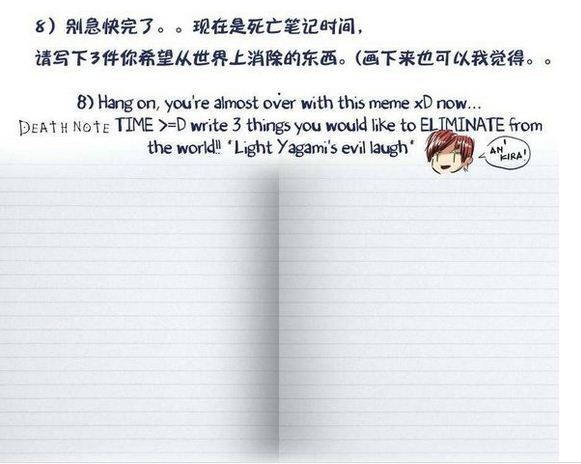 8）别急快完了。。现在是死亡笔记时间，
请写下3件你希望从世界上消除的东西。（画下来也可以我觉得。。
8) Hang on, you're almost over with this meme xD now...
DEATH NOTE TIME >=D write 3 things you would like to ELIMINATE from
the world!! *Light Yagami's evil laugh*
AN'
KIRA!